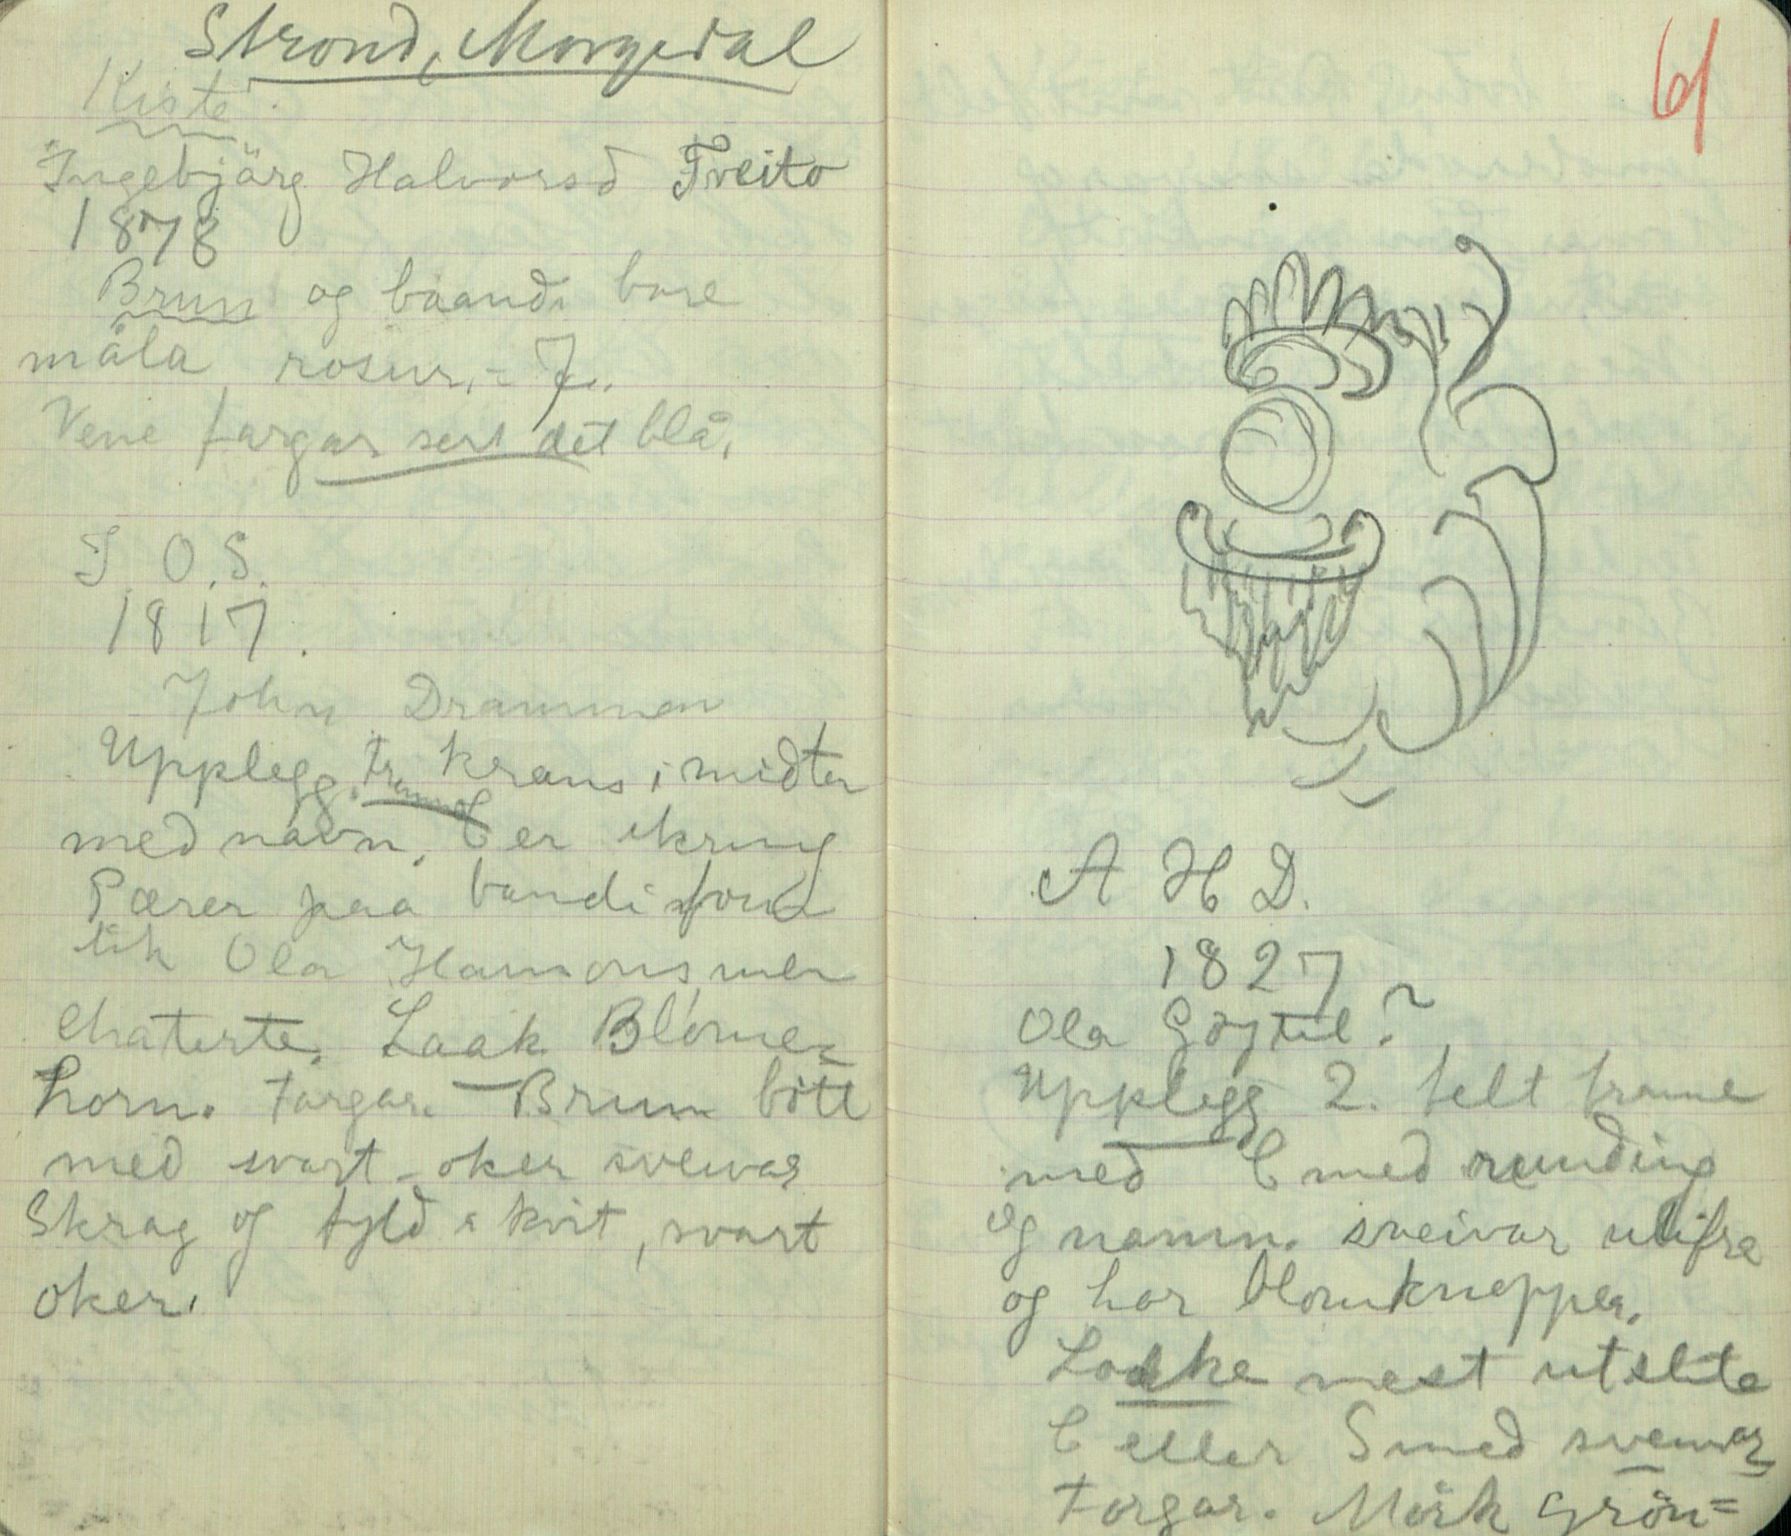 Strond, Morgedal
Kiste.
Ingebjärg Halvorsd Tveito
1878
Brun og baandi bare
måla rosur. -
Vene fargar sers det blå.
J. O. S.
1817.
John Drammen
Upplegg. Fram krans i midten
med navn. C er ikring
Pærer paa bandi som
lik Ola Hansons, men
Laak Blome=
horn. Fargar. Brun bott
med svart - oker sveivar
Skrag og fyld i kvit, svart
oker.
61
A H D.
1827
Ola Göytil?
Upplegg 2. felt frame
med C med runding
og namn. sveivar utifra
og har blomknepper.
Lokke mest utslite
C eller S med sveivar
Fargar. Mörk Grön=